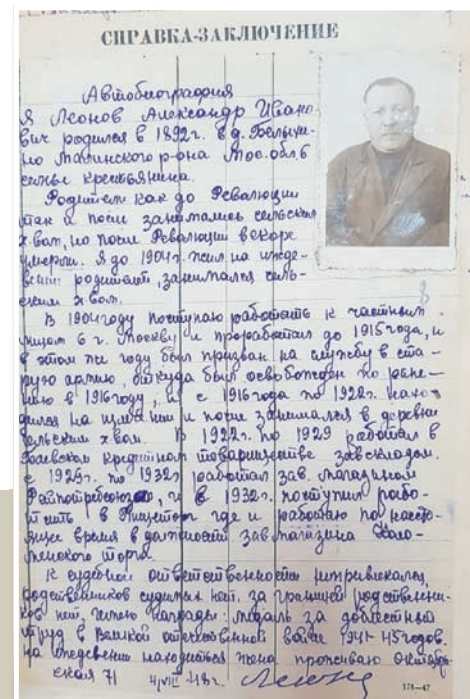 СПРАВКА-ЗАКЛЮЧЕНИЕ
Автобиография
Я Леонов Александр Ивано-
вич родился в 1892 г. в д.
но р-она Мос. обл. в
семье крестьянина.
Родители как до Революции
так и после занимались сельским
х-вом, но после Революции вскоре
умерли. Я до 1904 г. жил на ижде-
вении родителей, занимался сель-
ским х-вом.
В 1904 году поступаю работать к частным
лицам в г. Москву и проработал до 1915 года, и
в этом же году был призван на службу в ста-
рую армию, откуда был освобожден по ране-
нию в 1916 году, и с 1916 года по 1922 г. нахо-
дился на и после занимался в деревне
сельским х-вом. В 1922 г. по 1929 работал в
кредитном товариществе зав складом.
с 1929 г. по 1932 г работал зав. магазином
Райпотребсоюза, и в 1932 г. поступил рабо-
тать в Пищеторг где и работаю по насто-
ящее время в должности зав магазина Коло-
менского торга.
К судебной ответственности непривлекался,
родственников судимых нет, за границей родственни-
ков нет, имею награды: медаль за доблестный
труд в Великой отечественной войне 1941-45 годов.
на иждевении находиться жена проживаю Октябрь-
ская 71 4/VIII 48 г.
178—47
8